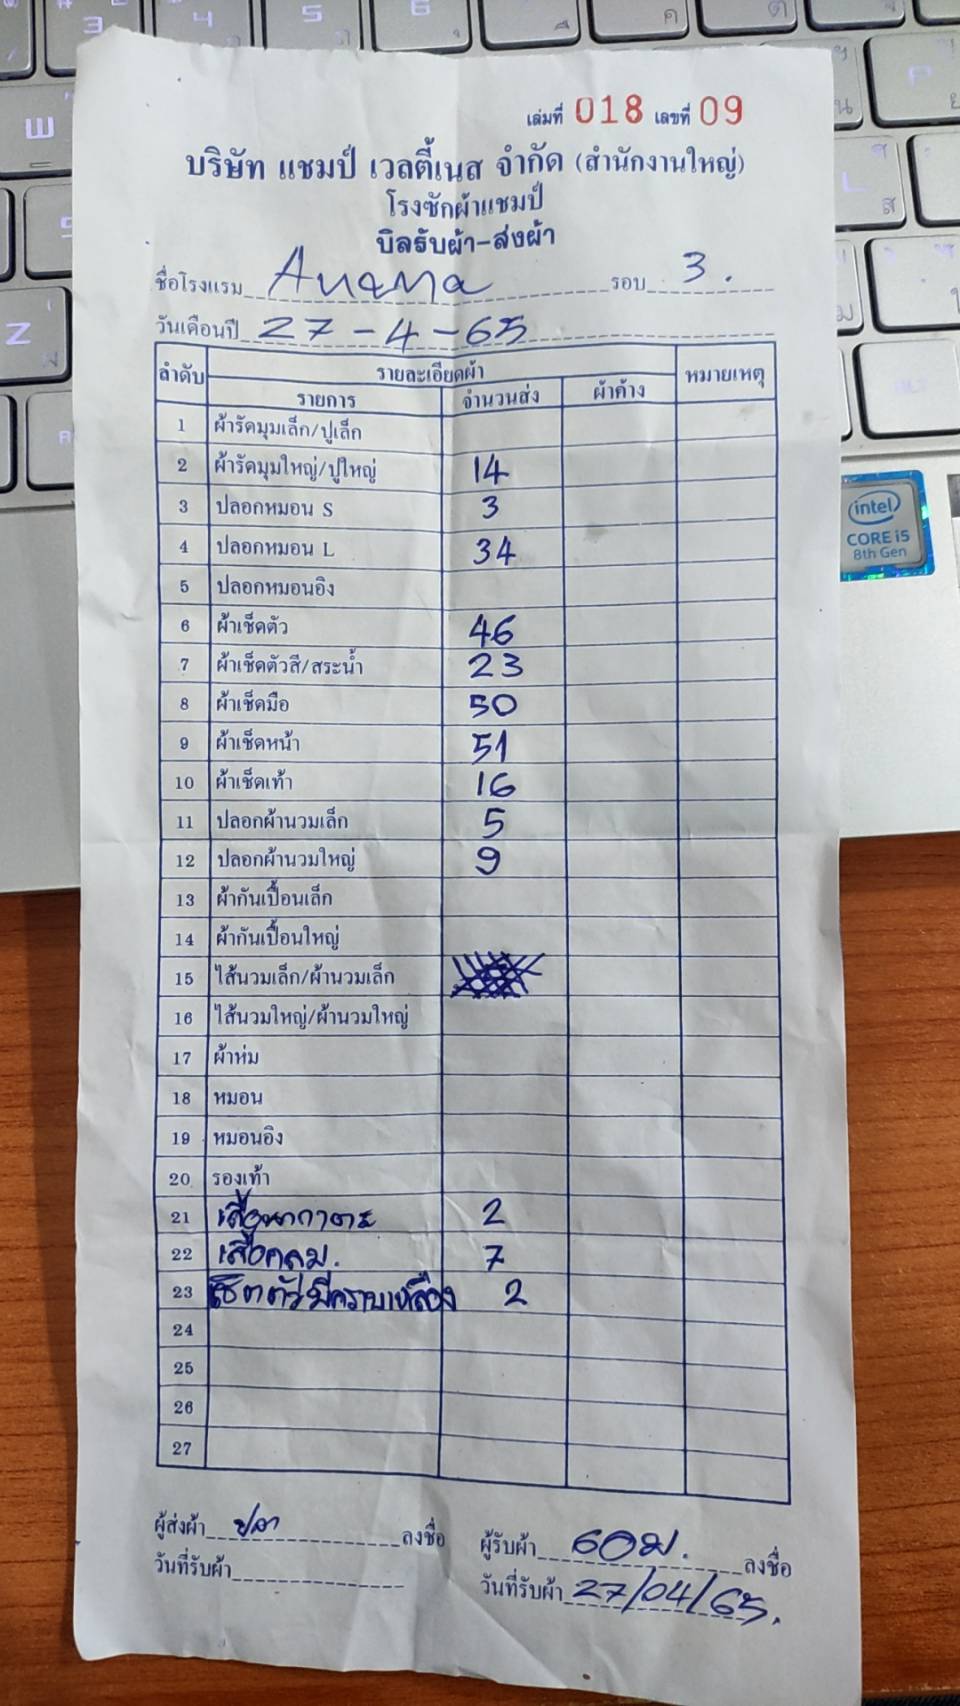 เล่มที่ 018 เลขที่ 09
บริษัท แชมป์ เวลตี้เนส จำกัด (สำนักงานใหญ่)
โรงซักผ้าแชมป์
บิลรับผ้า-ส่งผ้า
ชื่อโรงแรม Anana รอบ 3.
วันเดือนปี 27-4-65
ลำดับ รายละเอียดผ้า หมายเหตุ
รายการ จำนวนส่ง ผ้าค้าง
1 ผ้ารัดมุมเล็ก/ปูเล็ก
2 ผ้ารัดมุมใหญ่/ปูใหญ่ 14
3 ปลอกหมอน S 3
4 ปลอกหมอน L 34
5 ปลอกหมอนอิง
6 ผ้าเช็ดตัว 46
7 ผ้าเช็ดตัวสี/สระน้ำ 23
8 ผ้าเช็ดมือ 50
9 ผ้าเช็ดหน้า 51
10 ผ้าเช็ดเท้า 16
11 ปลอกผ้านวมเล็ก 5
12 ปลอกผ้านวมใหญ่ 9
13 ผ้ากันเปื้อนเล็ก
14 ผ้ากันเปื้อนใหญ่
15 ไส้นวมเล็ก/ผ้านวมเล็ก
16 ไส้นวมใหญ่/ผ้านวมใหญ่
17 ผ้าห่ม
18 หมอน
19 หมอนอิง
20 รองเท้า
21 2
22 เสื้อคลุม. 7
23 เช็ดตัวมีคราบเหลือง 2
24
25
26
27
ผู้ส่งผ้า ปลา ลงชื่อ ผู้รับผ้า ลงชื่อ
วันที่รับผ้า วันที่รับผ้า 27/04/65.
intel
CORE i5
8th Gen